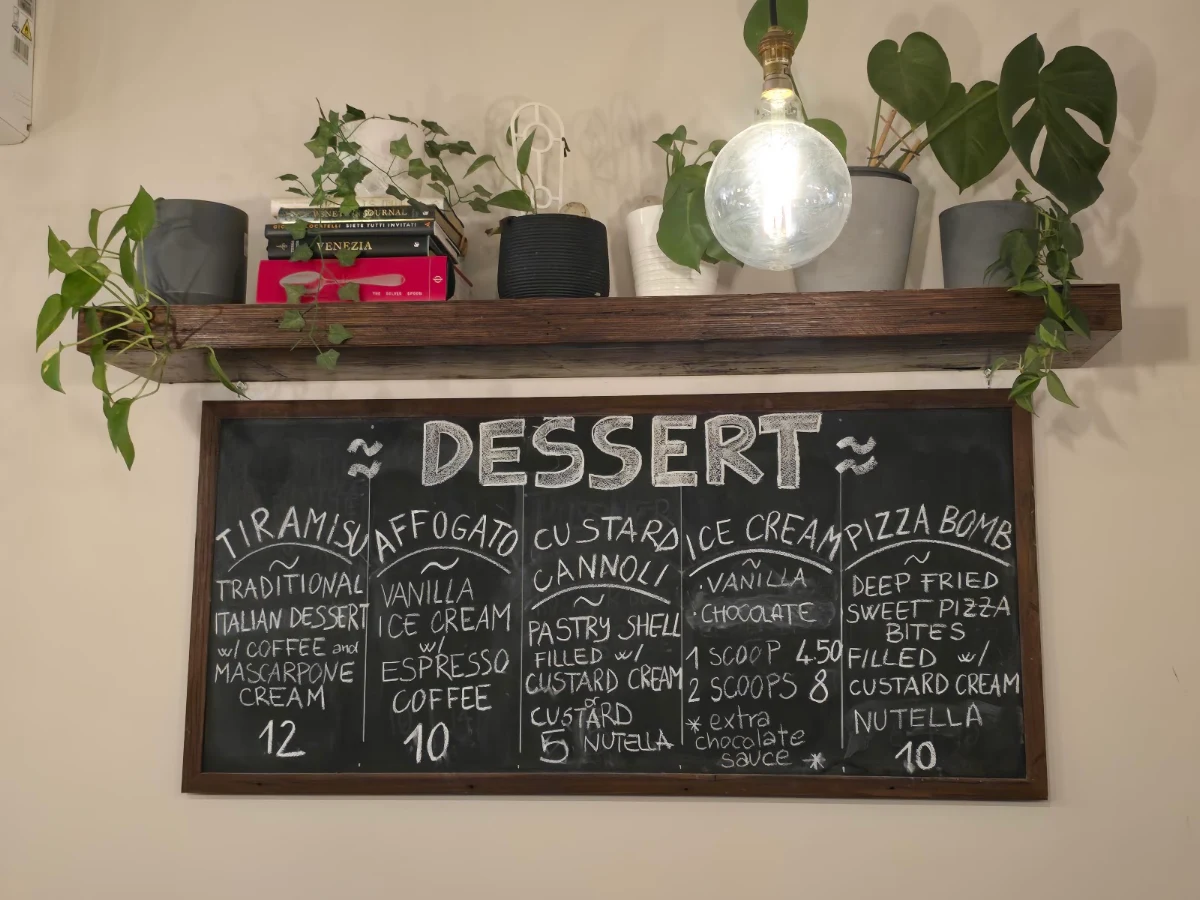 VENETO JOURNAL
SIETE TUTTI INVITATI
VENEZIA
THE SILVER SPOON
≈ DESSERT ≈
TIRAMISU
~
TRADITIONAL
ITALIAN DESSERT
w/ COFFEE and
MASCARPONE
CREAM
12
AFFOGATO
~
VANILLA
ICE CREAM
w/
ESPRESSO
COFFEE
10
CUSTARD
CANNOLI
~
PASTRY SHELL
FILLED w/
CUSTARD CREAM
or
CUSTARD
5 NUTELLA
ICE CREAM
~
·VANILLA
·CHOCOLATE
1 SCOOP 4.50
2 SCOOPS 8
* extra
chocolate
sauce *
PIZZA BOMB
~
DEEP FRIED
SWEET PIZZA
BITES
FILLED w/
CUSTARD CREAM
NUTELLA
10